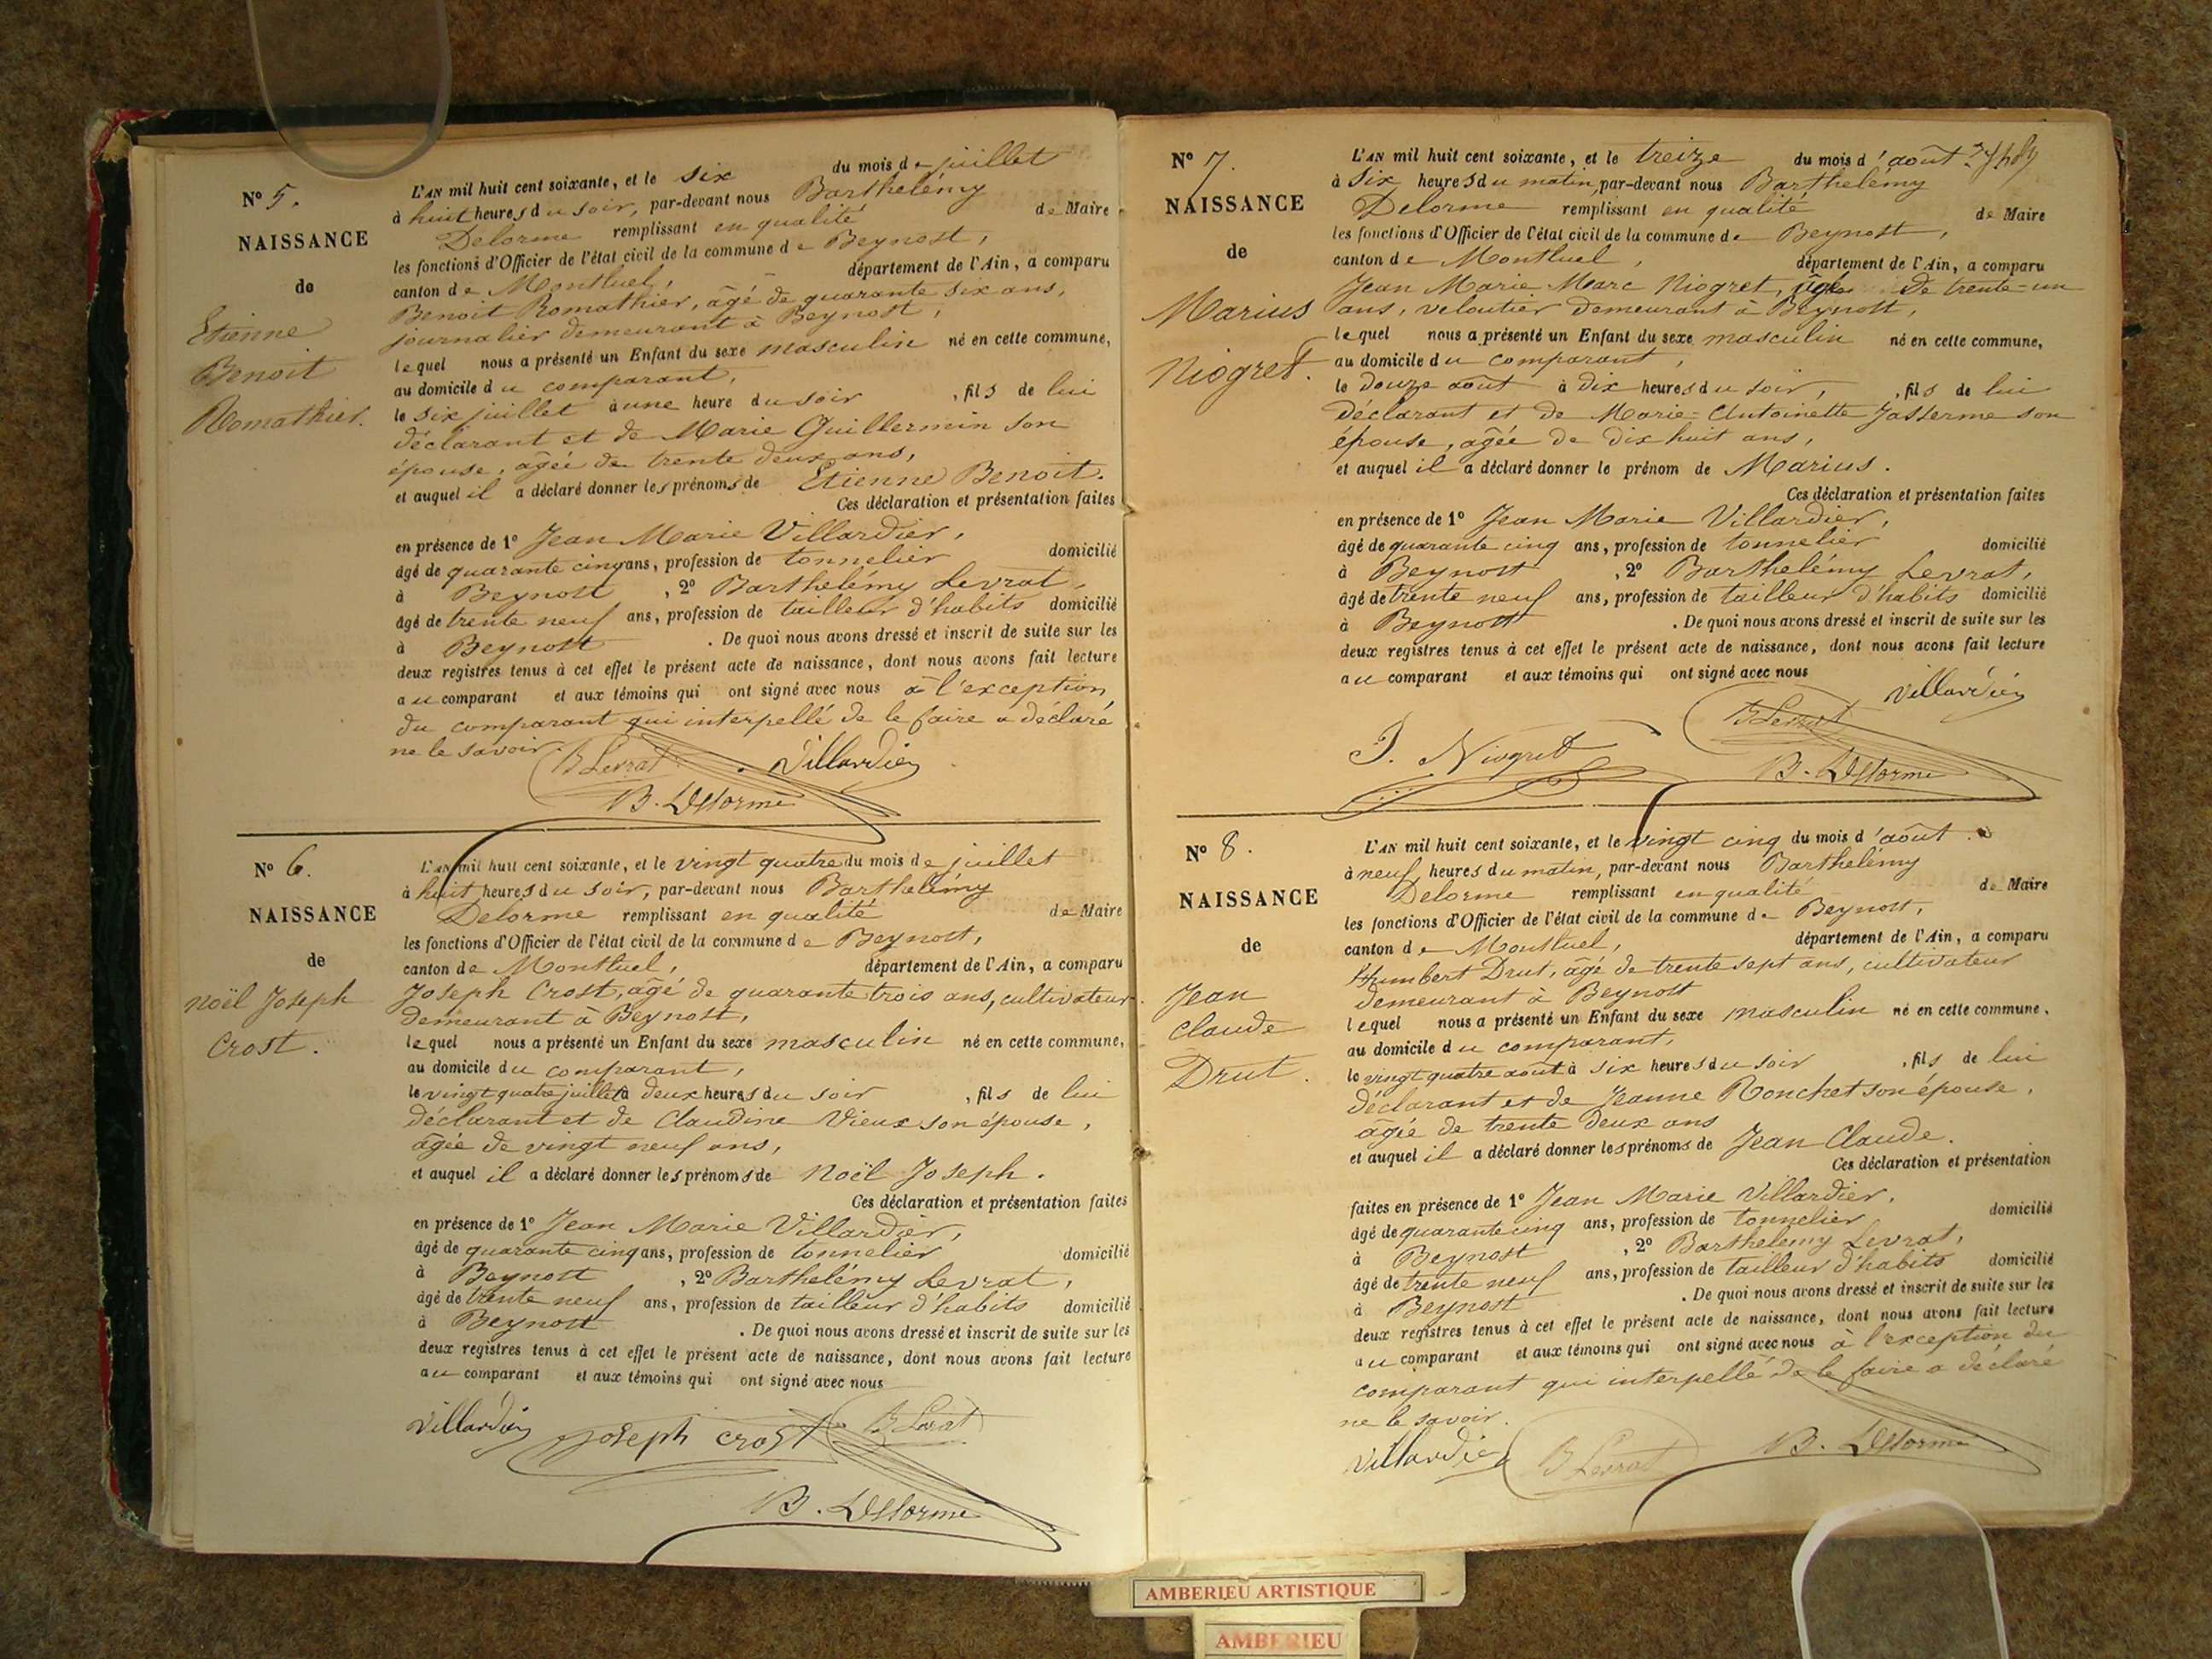 N° 5.
NAISSANCE
de
Etienne
Benoit
Romathier.
L'AN mil huit cent soixante, et le six du mois de juillet
à huit heures du soir, par-devant nous Barthelémy
Delorme remplissant en qualité de Maire
les fonctions d'Officier de l'état civil de la commune de Beynost,
canton de Montluel, département de l'Ain, a comparu
Benoit Romathier, âgé de quarante six ans,
journalier demeurant à Beynost,
lequel nous a présenté un Enfant du sexe masculin né en cette commune,
au domicile du comparant,
le six juillet à une heure du soir, fils de lui
déclarant et de Marie Guillermin son
épouse, âgée de trente deux ans,
et auquel il a déclaré donner les prénoms de Etienne Benoit.
Ces déclaration et présentation faites
en présence de 1° Jean Marie Villardier,
âgé de quarante cinq ans, profession de tonnelier domicilié
à Beynost, 2° Barthelémy Levrat,
âgé de trente neuf ans, profession de tailleur d'habits domicilié
à Beynost. De quoi nous avons dressé et inscrit de suite sur les
deux registres tenus à cet effet le présent acte de naissance, dont nous avons fait lecture
au comparant et aux témoins qui ont signé avec nous à l'exception
du comparant qui interpellé de le faire a déclaré
ne le savoir.
B Levrat Villardier
B. Delorme
N° 6.
NAISSANCE
de
Noël Joseph
Crost.
L'AN mil huit cent soixante, et le vingt quatre du mois de juillet
à huit heures du soir, par-devant nous Barthelémy
Delorme remplissant en qualité de Maire
les fonctions d'Officier de l'état civil de la commune de Beynost,
canton de Montluel, département de l'Ain, a comparu
Joseph Crost, âgé de quarante trois ans, cultivateur
demeurant à Beynost,
lequel nous a présenté un Enfant du sexe masculin né en cette commune,
au domicile du comparant,
le vingt quatre juillet à deux heures du soir, fils de lui
déclarant et de Claudine Vieux son épouse,
âgée de vingt neuf ans,
et auquel il a déclaré donner les prénoms de Noël Joseph.
Ces déclaration et présentation faites
en présence de 1° Jean Marie Villardier,
âgé de quarante cinq ans, profession de tonnelier domicilié
à Beynost, 2° Barthelémy Levrat,
âgé de trente neuf ans, profession de tailleur d'habits domicilié
à Beynost. De quoi nous avons dressé et inscrit de suite sur les
deux registres tenus à cet effet le présent acte de naissance, dont nous avons fait lecture
au comparant et aux témoins qui ont signé avec nous
Villardier joseph crost B Levrat
B. Delorme
N° 7.
NAISSANCE
de
Marius
Niogret.
L'AN mil huit cent soixante, et le treize du mois d'août
à six heures du matin, par-devant nous Barthelémy
Delorme remplissant en qualité de Maire
les fonctions d'Officier de l'état civil de la commune de Beynost,
canton de Montluel, département de l'Ain, a comparu
Jean Marie Marc Niogret, âgé de trente-un
ans, veloutier demeurant à Beynost,
lequel nous a présenté un Enfant du sexe masculin né en cette commune,
au domicile du comparant,
le douze août à dix heures du soir, fils de lui
déclarant et de Marie-Antoinette Jasserme son
épouse, âgée de dix huit ans,
et auquel il a déclaré donner le prénom de Marius.
Ces déclaration et présentation faites
en présence de 1° Jean Marie Villardier,
âgé de quarante cinq ans, profession de tonnelier domicilié
à Beynost, 2° Barthelémy Levrat,
âgé de trente neuf ans, profession de tailleur d'habits domicilié
à Beynost. De quoi nous avons dressé et inscrit de suite sur les
deux registres tenus à cet effet le présent acte de naissance, dont nous avons fait lecture
au comparant et aux témoins qui ont signé avec nous
Villardier
B Levrat
J. Niogret
B. Delorme
N° 8.
NAISSANCE
de
Jean
Claude
Drut.
L'AN mil huit cent soixante, et le vingt cinq du mois d'août
à neuf heures du matin, par-devant nous Barthelémy
Delorme remplissant en qualité de Maire
les fonctions d'Officier de l'état civil de la commune de Beynost,
canton de Montluel, département de l'Ain, a comparu
Humbert Drut, âgé de trente sept ans, cultivateur
demeurant à Beynost
lequel nous a présenté un Enfant du sexe masculin né en cette commune,
au domicile du comparant,
le vingt quatre août à six heures du soir, fils de lui
déclarant et de Jeanne Ronchet son épouse,
âgée de trente deux ans
et auquel il a déclaré donner les prénoms de Jean Claude.
Ces déclaration et présentation
faites en présence de 1° Jean Marie Villardier,
âgé de quarante cinq ans, profession de tonnelier domicilié
à Beynost, 2° Barthelemy Levrat,
âgé de trente neuf ans, profession de tailleur d'habits domicilié
à Beynost. De quoi nous avons dressé et inscrit de suite sur les
deux registres tenus à cet effet le présent acte de naissance, dont nous avons fait lecture
au comparant et aux témoins qui ont signé avec nous à l'exception du
comparant qui interpellé de le faire a déclaré
ne le savoir.
Villardier B Levrat B. Delorme
AMBERIEU ARTISTIQUE
AMBERIEU